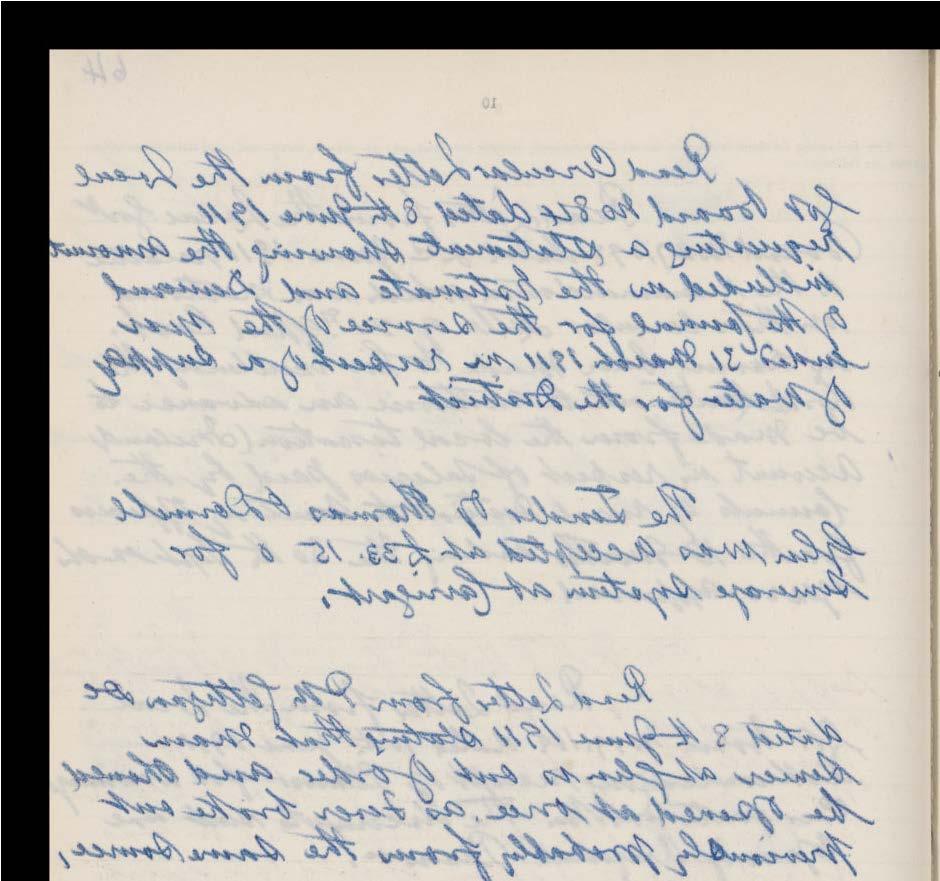 64
10
Read Circular Letter from the Local
Govt Board No 816 dated 8th June 1911
Requesting a Statement showing the amount
included in the Estimate and Demand
of the Council for the service of the Year
ended 31 March 1911 in respect of a supply
of Water for the District
The Tender of Thomas McDermott
Glen was accepted at £33. 15 0 for
Sewerage System at Carrigart.
Read Letter from Gettigan
dated 3th June 1911 stating that Main
Sewer at Glen is out of order and should
be opened at once, as Fever broke out
previously probably from the same source,